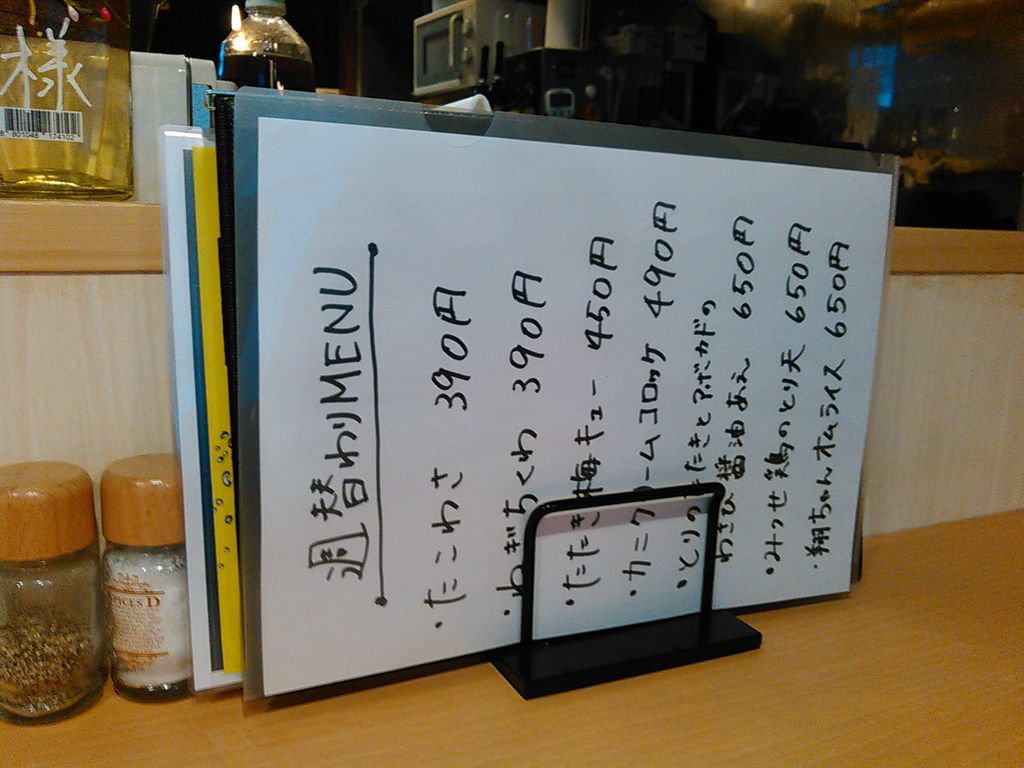 週替わりMENU
・たこわさ 390円
・ねぎちくわ 390円
・たたき梅キュー 450円
・カニクリームコロッケ 490円
・とりのたたきとアボカドの
わさび醤油あえ 650円
・みつせ鶏のとり天 650円
・翔ちゃんオムライス 650円
様
PICES D